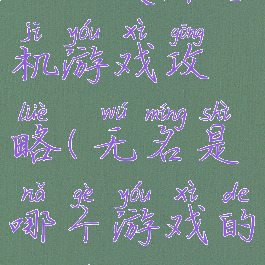 jī yóu xì gōng
机游戏攻
lüè wú míng shì
略(无名是
nǎ gè yóu xì de
哪个游戏的